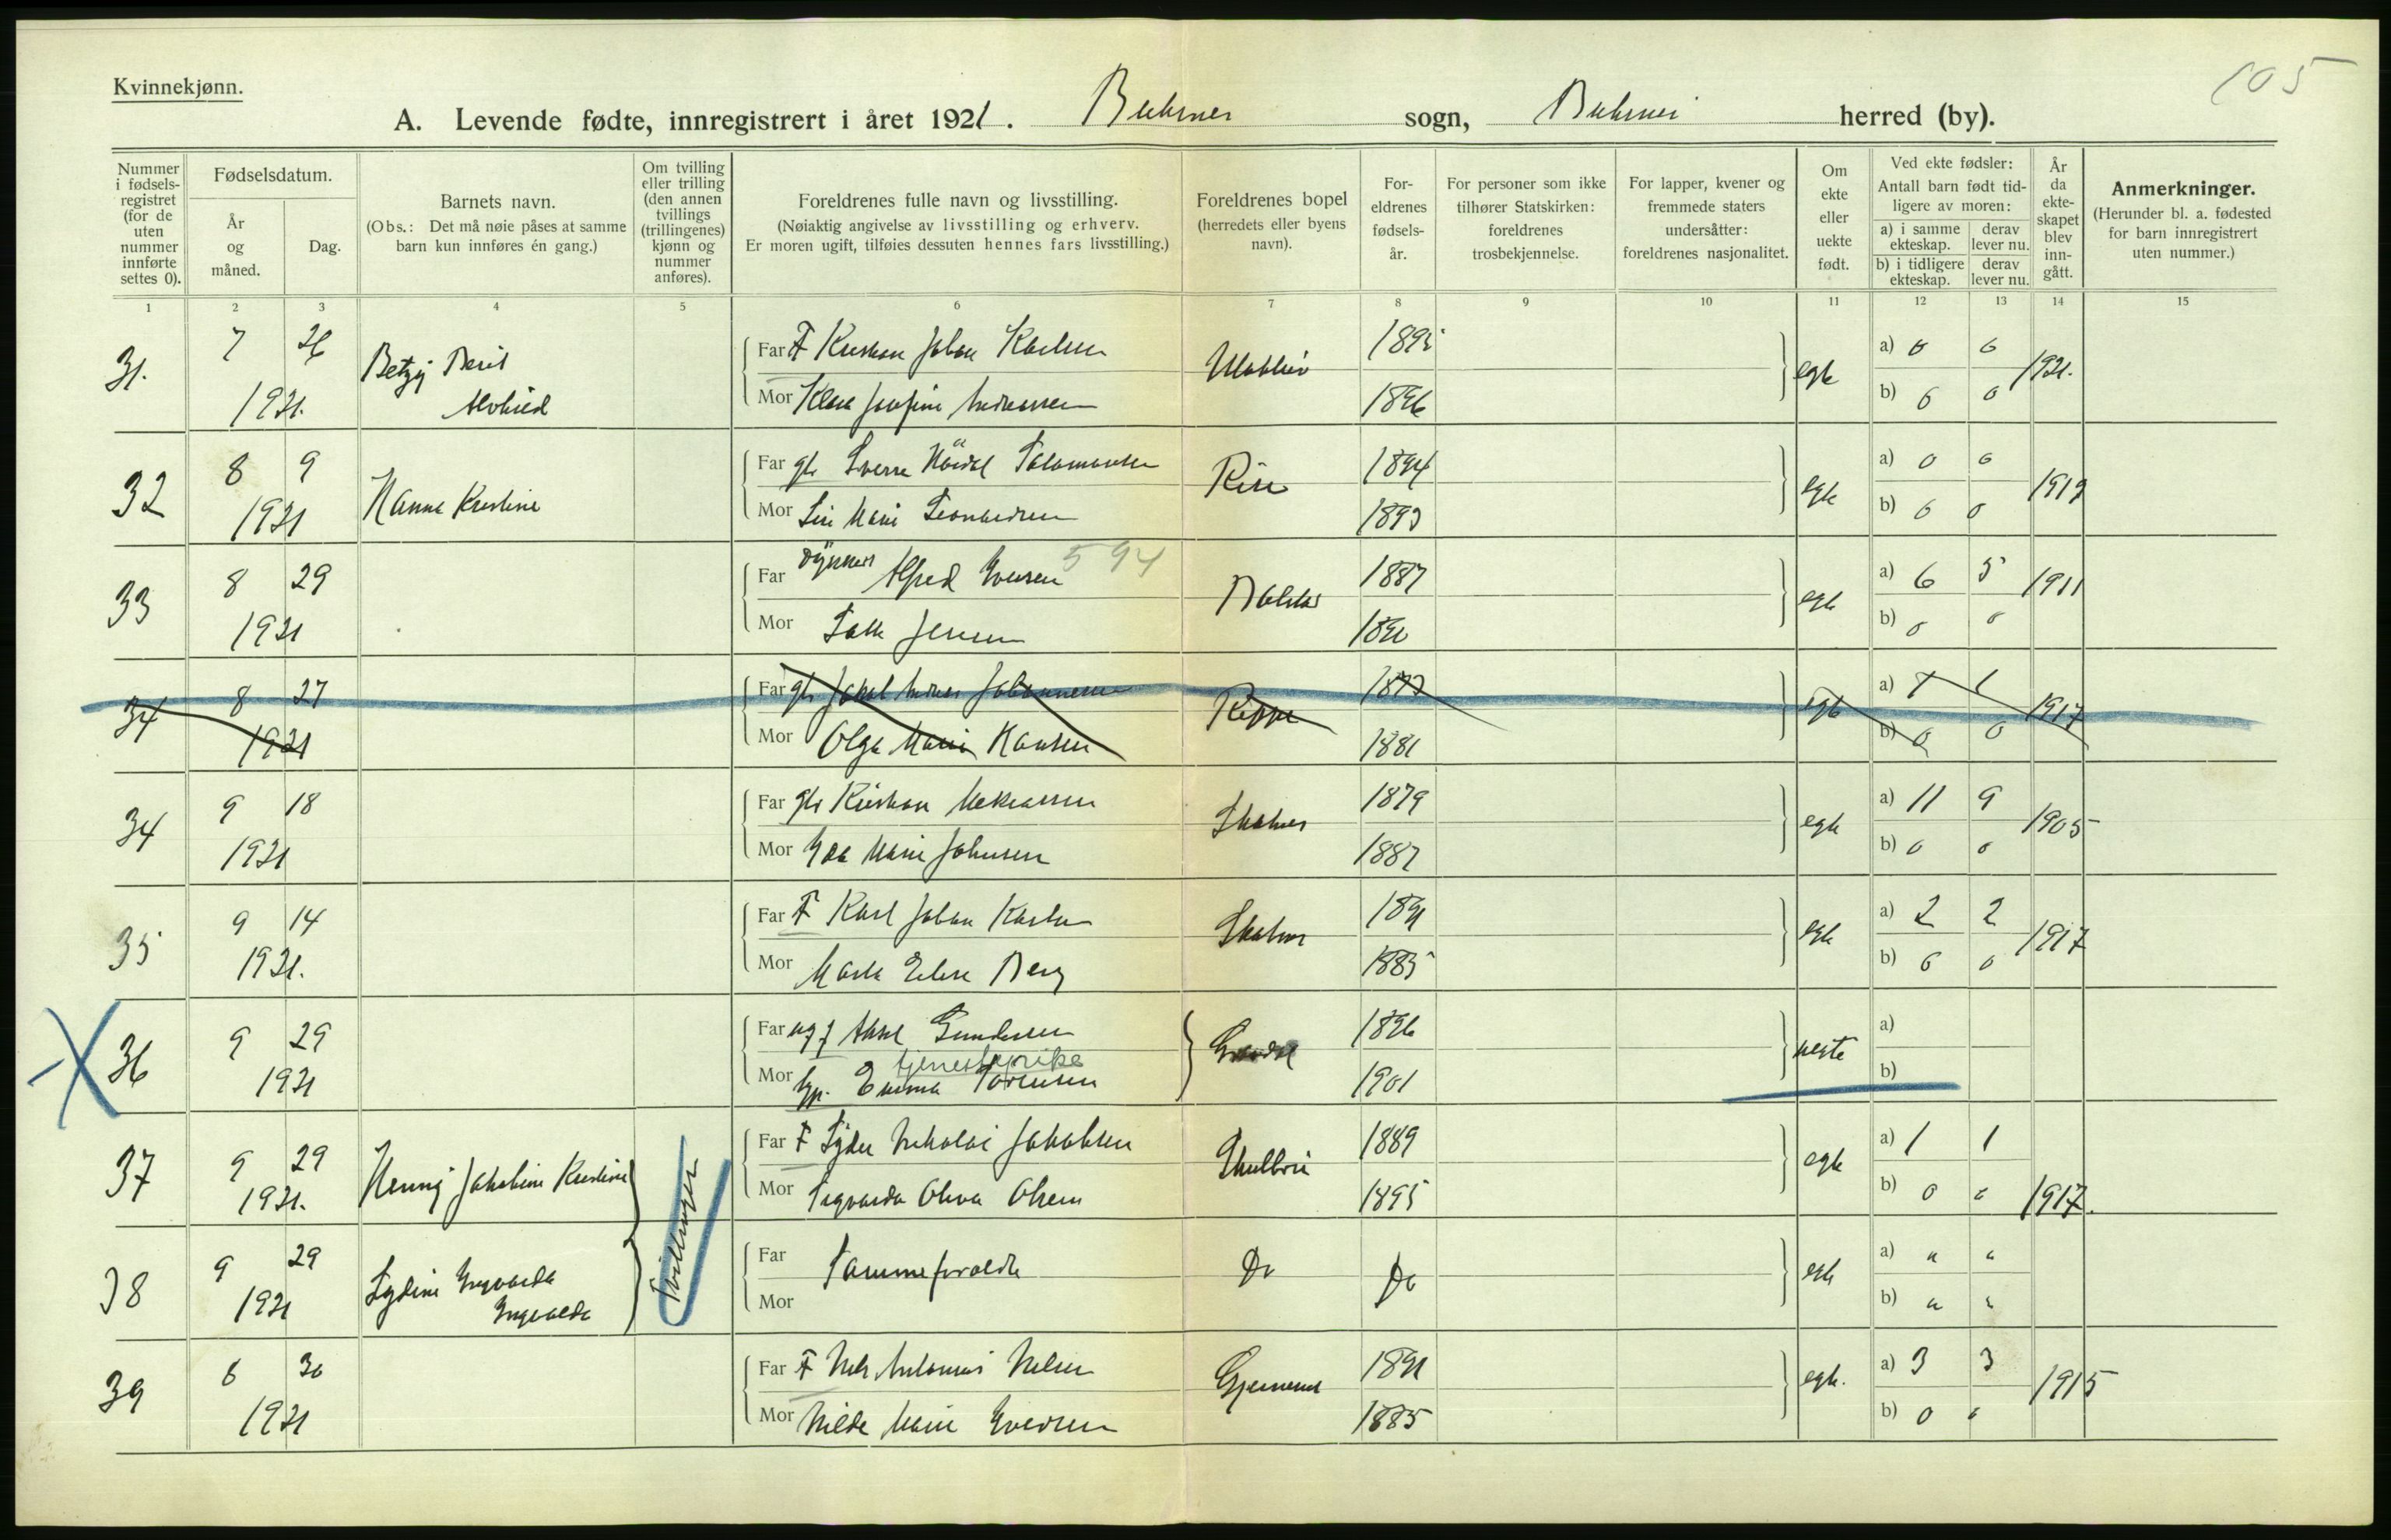 Kvinnekjønn.
105
A. Levende fødte, innregistrert i året 1921. Buksnes sogn, Buksnes herred (by).
Nummer i fødsels-registret (for de uten nummer innførte settes 0).
Fødselsdatum.
År og måned.
Dag.
Barnets navn.
(Obs.: Det må nøie påses at samme barn kun innføres én gang.)
Om tvilling eller trilling (den annen tvillings (trillingenes) kjønn og nummer anføres).
Foreldrenes fulle navn og livsstilling.
(Nøiaktig angivelse av livsstilling og erhverv.
Er moren ugift, tilføies dessuten hennes fars livsstilling.)
Foreldrenes bopel (herredets eller byens navn).
For-eldrenes fødsels-år.
For personer som ikke tilhører Statskirken: foreldrenes trosbekjennelse.
For lapper, kvener og fremmede staters undersåtter: foreldrenes nasjonalitet.
Om ekte eller uekte født.
Ved ekte fødsler:
Antall barn født tid-ligere av moren:
a) i samme ekteskap.
derav lever nu.
b) i tidligere ekteskap.
derav lever nu.
År da ekte-skapet blev inn-gått.
Anmerkninger.
(Herunder bl. a. fødested for barn innregistrert uten nummer.)
1 2 3 4 5 6 7 8 9 10 11 12 13 14 15
31. 7 26 1921. Betzy Berit Far F Kristian Johan Karlsen 1895 egte a) 0 0 1921.
Mor Klara Josefine Andreassen 1896 b) 0 0
32 8 9 1921 Hanna Kristine Far gb Sverre Salamonsen Risø 1894 egte a) 0 0 1919
Mor Marie Leonardsen 1893 b) 0 0
33 8 29 1921 Far Alfred Iversen 594 Balstad 1887 egte a) 6 5 1911
Mor Jensen 1890 b) 0 0
34 8 27 1921 Far gb Jakob Andreas Johannesen 1873 egte a) 1 1 1917
Mor Olga Marie Hansen 1881 b) 0 0
34 9 18 1921 Far gb Kristian 1879 egte a) 11 9 1905
Mor Ida Marie Johnsen 1887 b) 0 0
35 9 14 1921. Far F Karl Johan Karlsen 1891 egte a) 2 2 1917
Mor Berg 1885 b) 0 0
36 9 29 1921 Far ug f Aksel Gundersen 1896 uegte a)
tjenestepike
Mor Emma Sørensen 1901 b)
37 9 29 1921. Henny Jakobine Kristine Tvillinger Far F Nikolai Jakobsen 1889 egte a) 1 1
Mor Sigvarda Oliva Olsen 1895 b) 0 0 1917.
38 9 29 1921 Lydine Ingvarda Ingvalda Far Samme foreldre Do Do egte a) " "
Mor b) " "
39 6 30 1921 Far F Nils Nilsen 1891 egte. a) 3 3 1915
Mor Hilda Marie Iversen 1885 b) 0 0